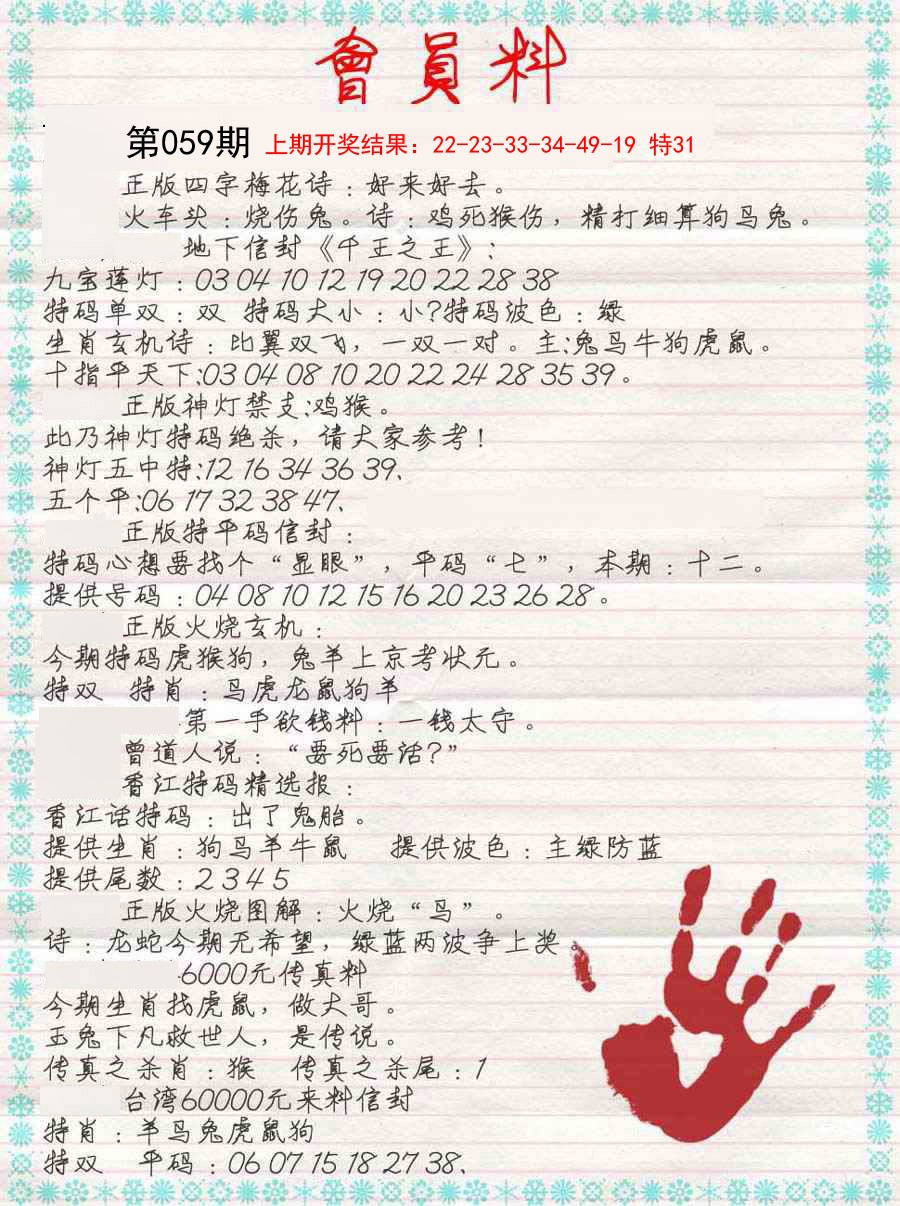 會員料
第059期 上期开奖结果：22-23-33-34-49-19 特31
正版四字梅花诗：好来好去。
火车头：烧伤兔。诗：鸡死猴伤，精打细算狗马兔。
地下信封《千王之王》：
九宝莲灯：03 04 10 12 19 20 22 28 38
特码单双：双 特码大小：小?特码波色：绿
生肖玄机诗：比翼双飞，一双一对。主:兔马牛狗虎鼠。
十指平天下:03 04 08 10 20 22 24 28 35 39。
正版神灯禁支:鸡猴。
此乃神灯特码绝杀，请大家参考!
神灯五中特:12 16 34 36 39、
五个平:06 17 32 38 47、
正版特平码信封：
特码心想要找个“显眼”，平码“七”，本期：十二。
提供号码：04 08 10 12 15 16 20 23 26 28。
正版火烧玄机：
今期特码虎猴狗，兔羊上京考状元。
特双 特肖：马虎龙鼠狗羊
第一手欲钱料：一钱太守。
曾道人说：“要死要活?”
香江特码精选报：
香江话特码：出了鬼胎。
提供生肖：狗马羊牛鼠 提供波色：主绿防蓝
提供尾数：2 3 4 5
正版火烧图解：火烧“马”。
诗：龙蛇今期无希望，绿蓝两波争上奖。
6000元传真料
今期生肖找虎鼠，做大哥。
玉兔下凡救世人，是传说。
传真之杀肖：猴 传真之杀尾：1
台湾60000元来料信封
特肖：羊马兔虎鼠狗
特双 平码：06 07 15 18 27 38、